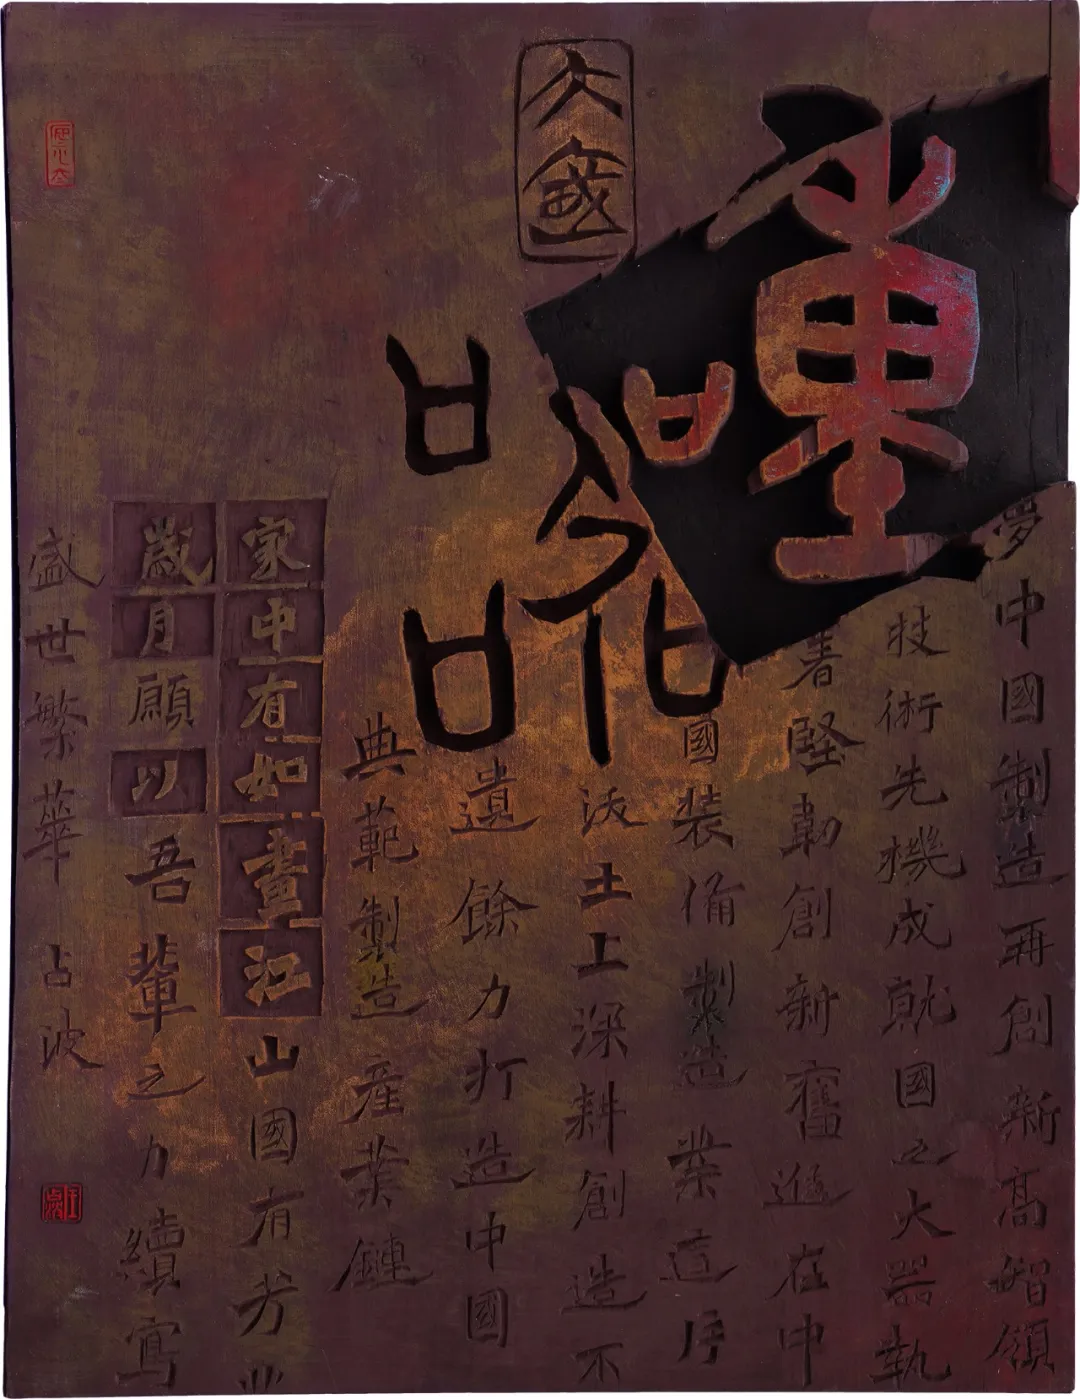 大國
重器
夢中國製造再創新高智領
技術先機成就國之大器執
著堅韌創新奮進在中
國裝俻製造業這片
沃土上深耕創造不
遺餘力打造中國
典範製造產業鏈
家中有如畫江山國有芳
歲月願以吾輩之力續寫
盛世繁華 占波